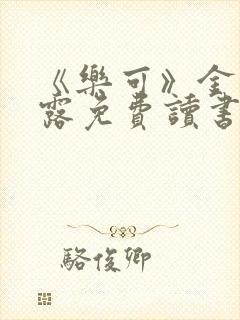 《樂可》金
露免費讀書
駱俊卿